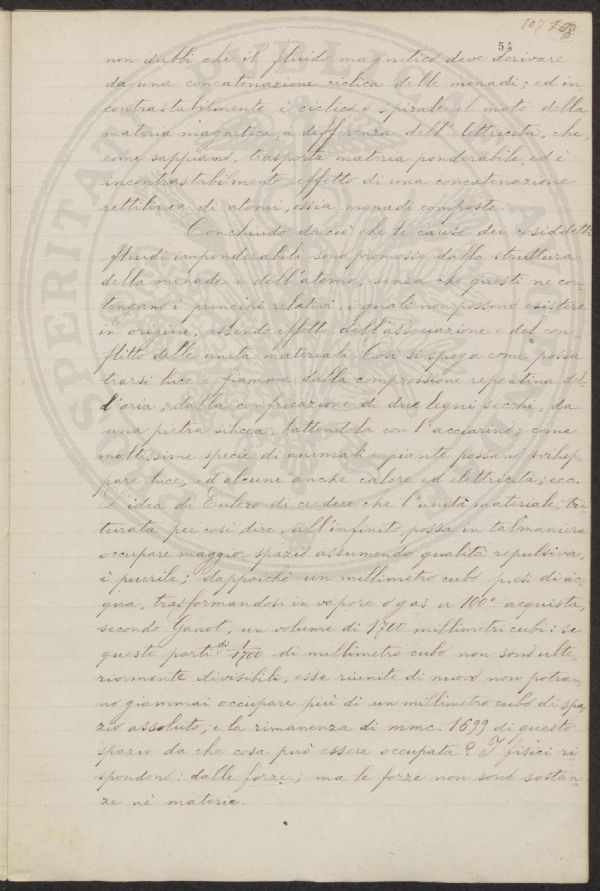 107 108
54
non dubbi che il fluido magnetico deve derivare
da una concatenazione ciclica delle monadi; ed in
contrastabilmente è ciclico o spirale il moto della
materia magnetica, a differenza dell'elettricità, che,
come sappiamo, trasporta materia ponderabile, ed è
incontrastabilmente effetto di una concatenazione
rettilinea di atomi, ossia monadi composte.
Conchiudo da ciò che le cause dei cosiddetti
fluidi imponderabili sono promosse dalla struttura
della monade e dell'atomo, senza che questi ne con-
tengano i principi relativi, i quali non possono esistere
in origine, essendo effetto dell'associazione e del con
flitto delle unità materiali. Così si spiega come possa
trarsi luce e fiamma dalla compressione repentina del-
l'aria, dalla confricazione di due legni secchi, da
una pietra silicea, battendola con l'acciarino; come
moltissime specie di animali e piante possano svilup-
pare luce, ed alcune anche calore ed elettricità; ecc.
L'idea di Eulero di credere che l'unità materiale, tri-
turata per così dire, all'infinito, possa in tal maniera
occupare maggior spazio assumendo qualità repulsiva,
è puerile; dappoichè un millimetro cubo p. es. di ac-
qua, trasformandosi in vapore o gas a 100° acquista,
secondo Ganot, un volume di 1700 millimetri cubi: se
queste parti di 1/1700 di millimetro cubo non sono ulte-
riormente divisibili, esse riunite di nuovo non potran-
no giammai occupare più di un millimetro cubo di spa-
zio assoluto; e la rimanenza di mmc. 1699 di questo
spazio da che cosa può essere occupata? I fisici ri-
spondono: dalle forze; ma le forze non sono sostan-
ze nè materie.